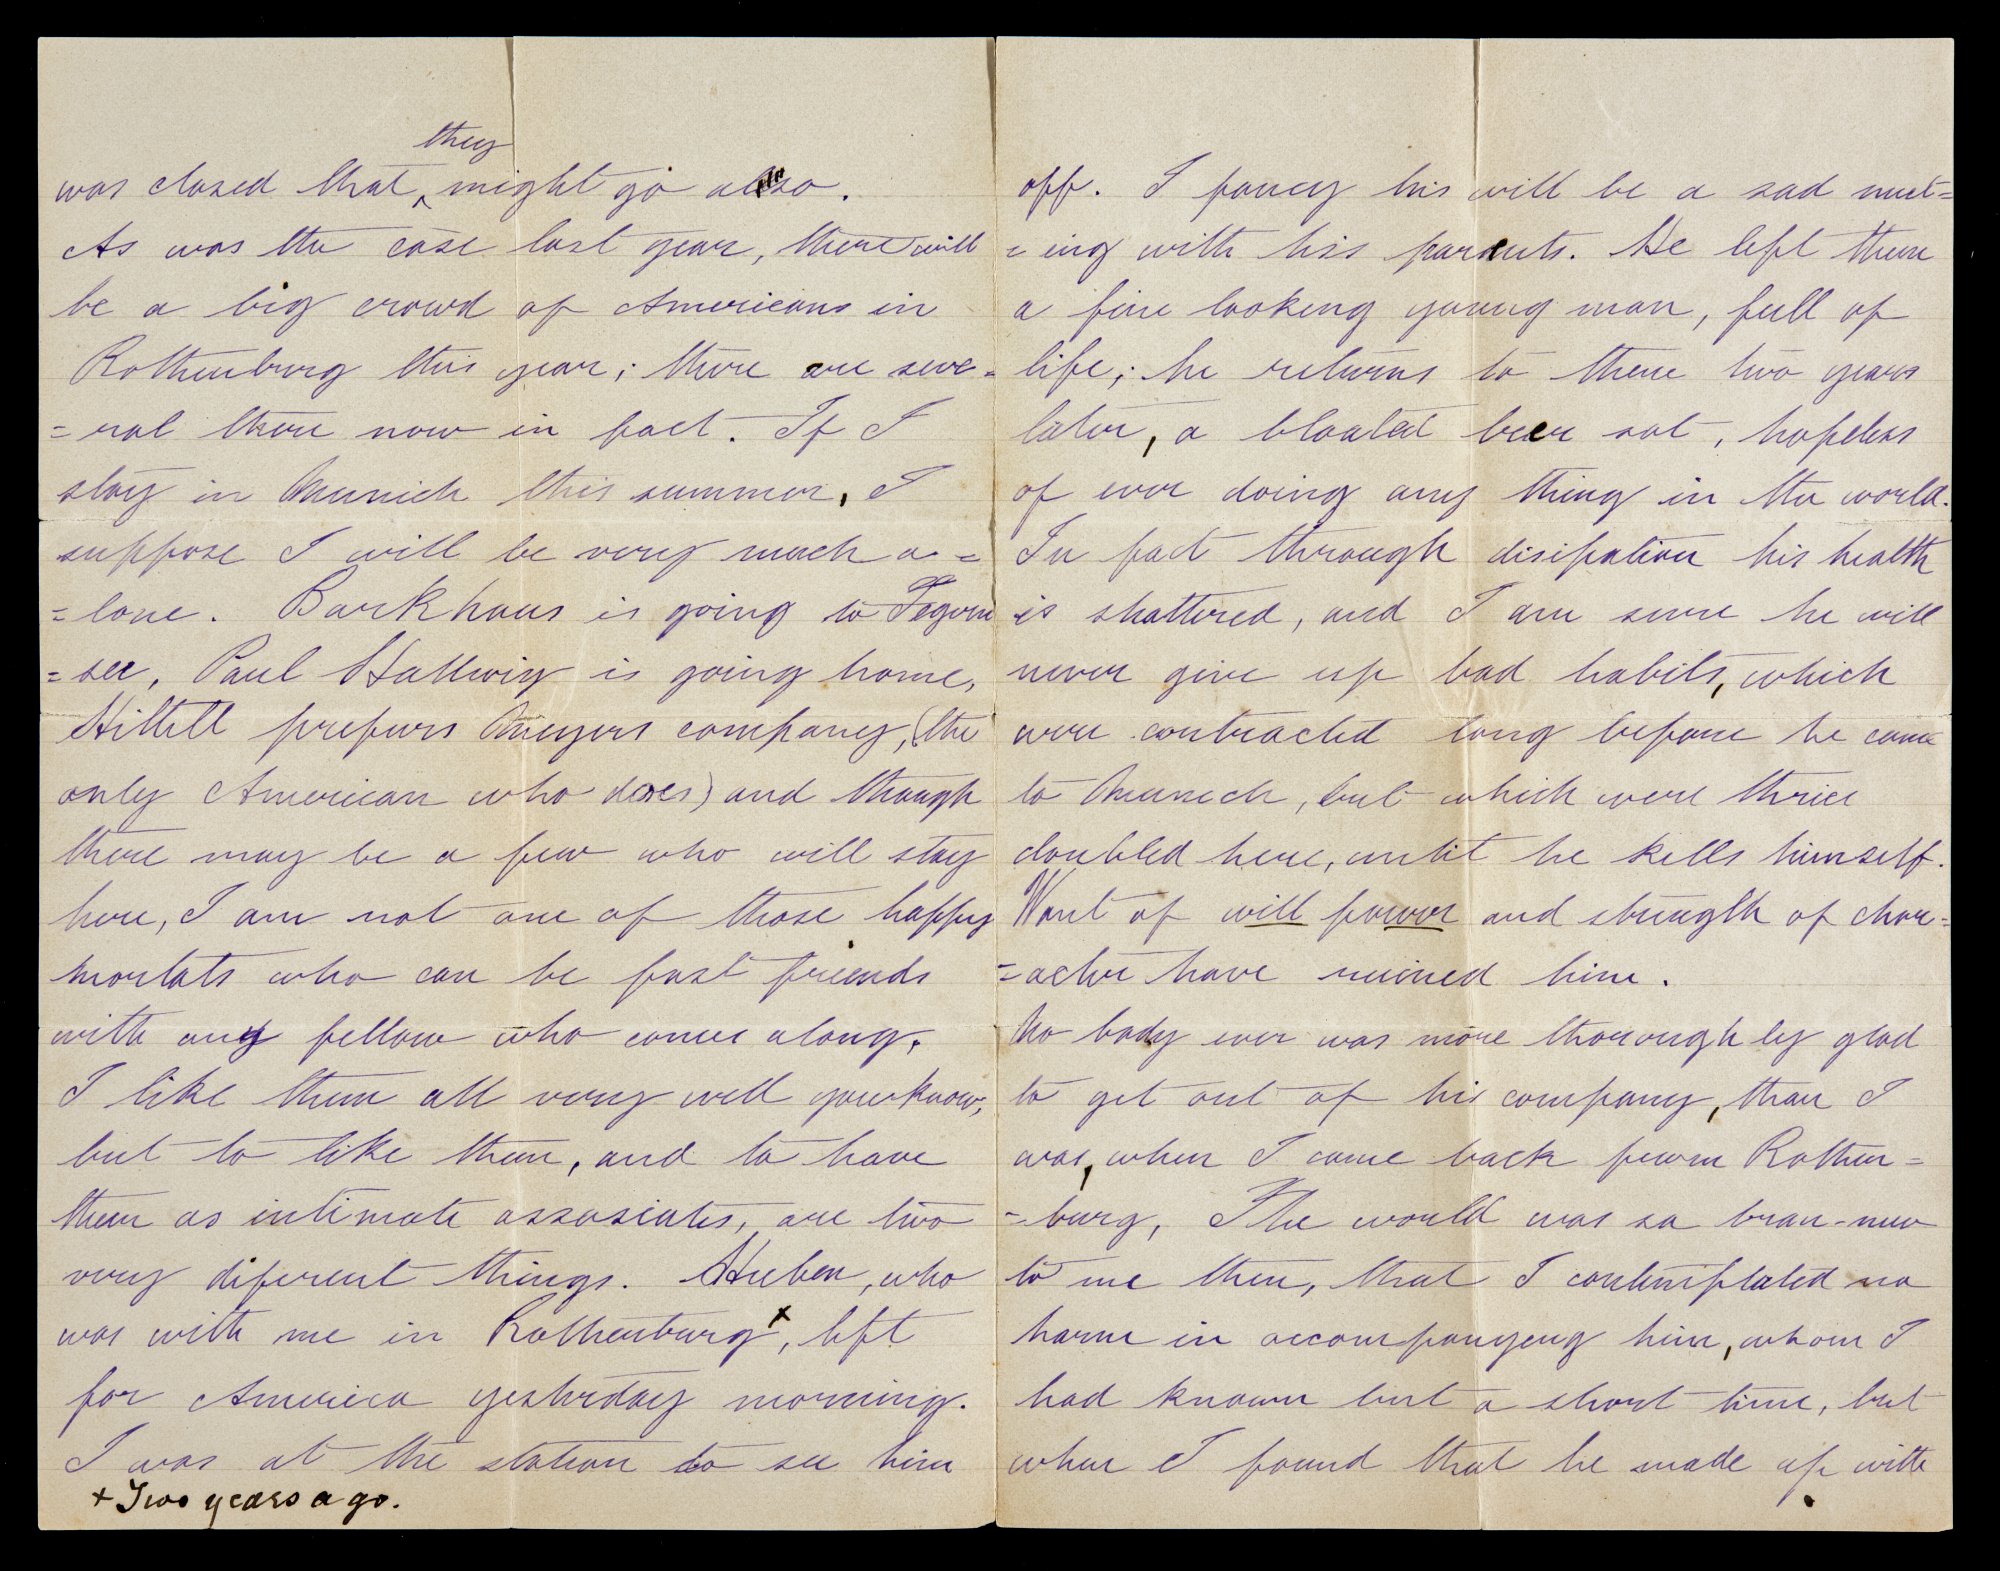 they
was closed that ‸ might go also.
As was the case last year, there will
be a big crowd of Americans in
Rothenburg this year; there are seve=
=ral there now in fact. If I
stay in Munich this summer, I
suppose I will be very much a=
=lone. Barkhaus is going to Tegern
=see, Paul Hallwig is going home,
Hittell prefers Meyers company, (the
only American who does) and though
there may be a few who will stay
here, I am not one of those happy
mortals who can be fast friends
with any fellow who comes along.
I like them all very well you know,
but to like them, and to have
them as intimate assosiates, are two
very diferent things. Huben, who
was with me in Rothenburg x, left
for America yesterday morning.
I was at the station to see him
+ Two years ago.
off. I fancy his will be a sad meet=
=ing with his parents. He left them
a fine looking young man, full of
life; he returns to them two years
later, a bloated beer sot, hopeless
of ever doing any thing in the world.
In fact through disipation his health
is shattered, and I am sure he will
never give up bad habits, which
were contracted long before he came
to Munich, but which were thrice
doubled here, until he kills himself.
Want of will power and strength of char=
=acter have ruined him.
No body ever was more thoroughly glad
to get out of his company, than I
was, when I came back from Rothen=
=burg, The world was so bran-new
to me then, that I contemplated no
harm in accompanyeng him, whom I
had known but a short time, but
when I found that he made up with